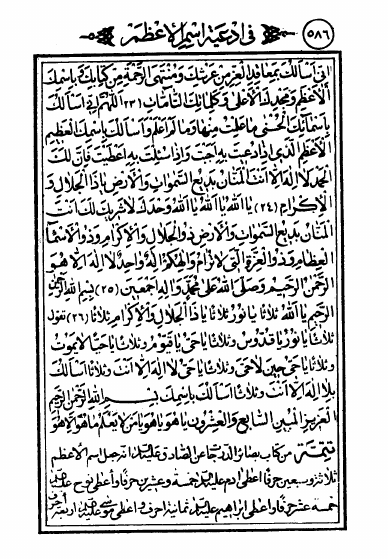 ٥٨٦ فى ادعية اسم الاعظم
انى أسألك بمعاقد العز من عرشك ومنتهى الرحمة من كتابك باسمك
الأعظم وبمجدك الأعلى وكلماتك التامات (٢٣) اللهم انى أسألك
بأسمائك الحسنى ما علمت منها وما لم أعلم وأسألك باسمك العظيم
الأعظم الذى اذا دعيت به أجبت واذا سئلت به أعطيت فان لك
الحمد لا اله الا أنت المنان بديع السموات والأرض يا ذا الجلال و
الإكرام (٢٤) يا الله يا الله يا الله وحدك لا شريك لك أنت
المنان بديع السموات والأرض ذو الجلال والإكرام وذو الأسماء
العظام وذو العزة التى لا ترام والهكم اله واحد لا اله الا هو
الرحمن الرحيم وصلى الله على محمد واله أجمعين (٢٥) بسم الله الرحمن
الرحيم يا الله ثلاثا يا نور ثلاثا يا ذا الجلال والإكرام ثلاثا (٢٦) تقول
ثلاثا يا نور يا قدوس وثلاثا يا حى يا قيوم وثلاثا يا حيا لا يموت
وثلاثا يا حى حين لا حى وثلاثا يا حى لا اله الا أنت وثلاثا أسألك
بلا اله الا أنت وثلاثا أسألك باسمك بسم الله الرحمن الرحيم
العزيز المبين السابع والعشرون يا هو يا هو يا من لا يعلم ما هو الا هو
تتمة من كتاب بصائر الدرجات عن الصادق عليه السلم انه جعل اسم الاعظم
ثلاثة وسبعين حرفا اعطى ادم عليه السلم خمسة وعشرين حرفا واعطى نوح عليه السلم
خمسة عشر حرفا واعطى ابراهيم عليه السلم ثمانية احرف واعطى موسى عليه السلم اربعة احرف